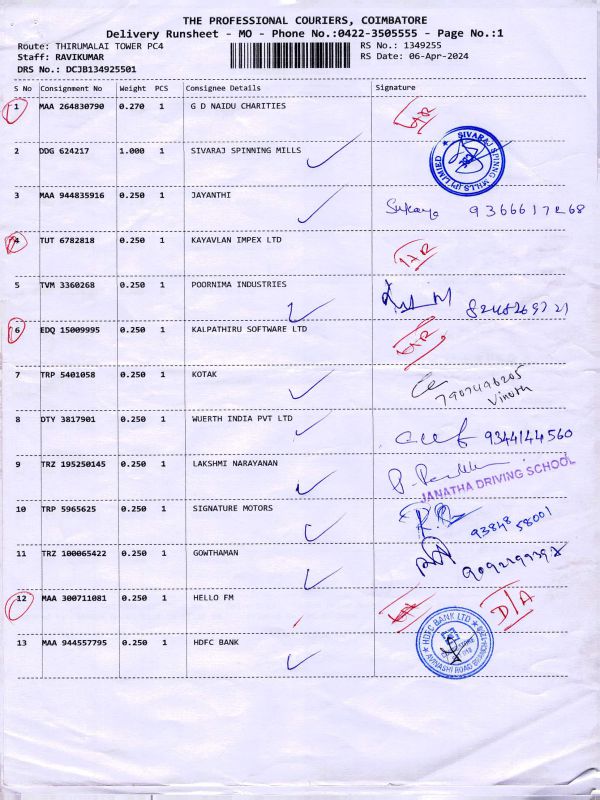 THE PROFESSIONAL COURIERS, COIMBATORE
Delivery Runsheet - MO - Phone No.:0422-3505555 - Page No.:1
Route: THIRUMALAI TOWER PC4 RS No.: 1349255
Staff: RAVIKUMAR RS Date: 06-Apr-2024
DRS No.: DCJB134925501
S No Consignment No Weight PCS Consignee Details Signature
1 MAA 264830790 0.270 1 G D NAIDU CHARITIES
2 DDG 624217 1.000 1 SIVARAJ SPINNING MILLS SIVARAJ SPINNING MILLS (P) LIMITED
3 MAA 944835916 0.250 1 JAYANTHI 9366617268
4 TUT 6782818 0.250 1 KAYAVLAN IMPEX LTD
5 TVM 3360268 0.250 1 POORNIMA INDUSTRIES
6 EDQ 15009995 0.250 1 KALPATHIRU SOFTWARE LTD
7 TRP 5401058 0.250 1 KOTAK 7907496205
Vinoth
8 DTY 3817901 0.250 1 WUERTH INDIA PVT LTD 9344144560
9 TRZ 195250145 0.250 1 LAKSHMI NARAYANAN
JANATHA DRIVING SCHOOL
10 TRP 5965625 0.250 1 SIGNATURE MOTORS 93848 58001
11 TRZ 100065422 0.250 1 GOWTHAMAN
12 MAA 300711081 0.250 1 HELLO FM D/A
13 MAA 944557795 0.250 1 HDFC BANK HDFC BANK LTD